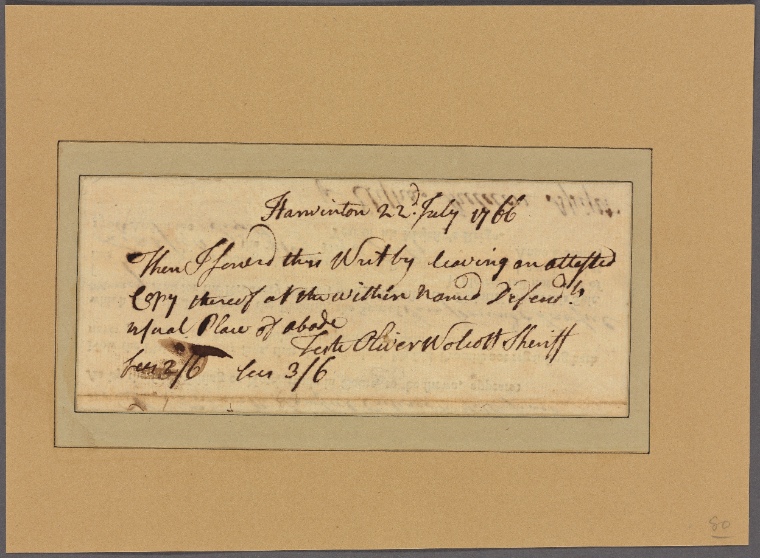 Harwinton 22d. July 1766
Then I Served this Writ by leaving an attested
Copy thereof at the within named Defendts.
usual Place of abode
Teste Oliver Wolcott Sheriff
fees 2/6 fees 3/6
80